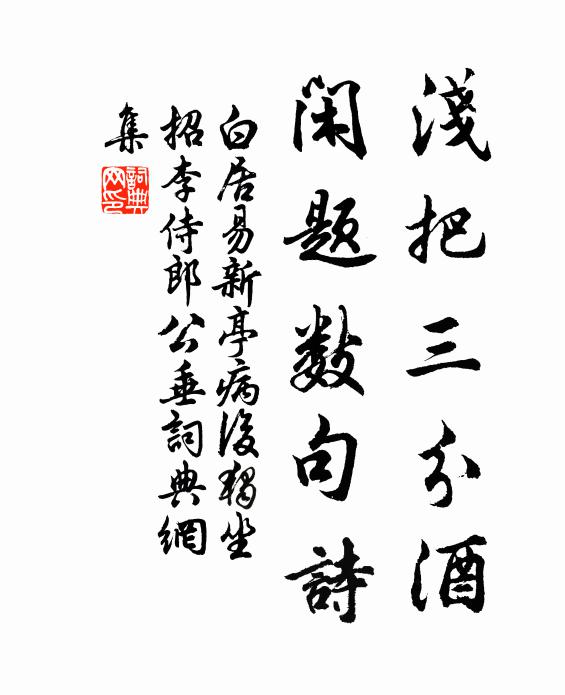 淺把三分酒
閑題數句詩
白居易新亭病後獨坐
招李侍郎公垂詞典網
集
詞典網印